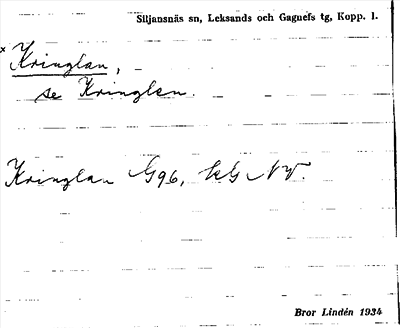 Siljansnäs sn, Leksands och Gagnefs tg, Kopp. l.
x Kringlan, -
se Kringlen.
Kringlan G96, kG NV.
Bror Lindén 1934